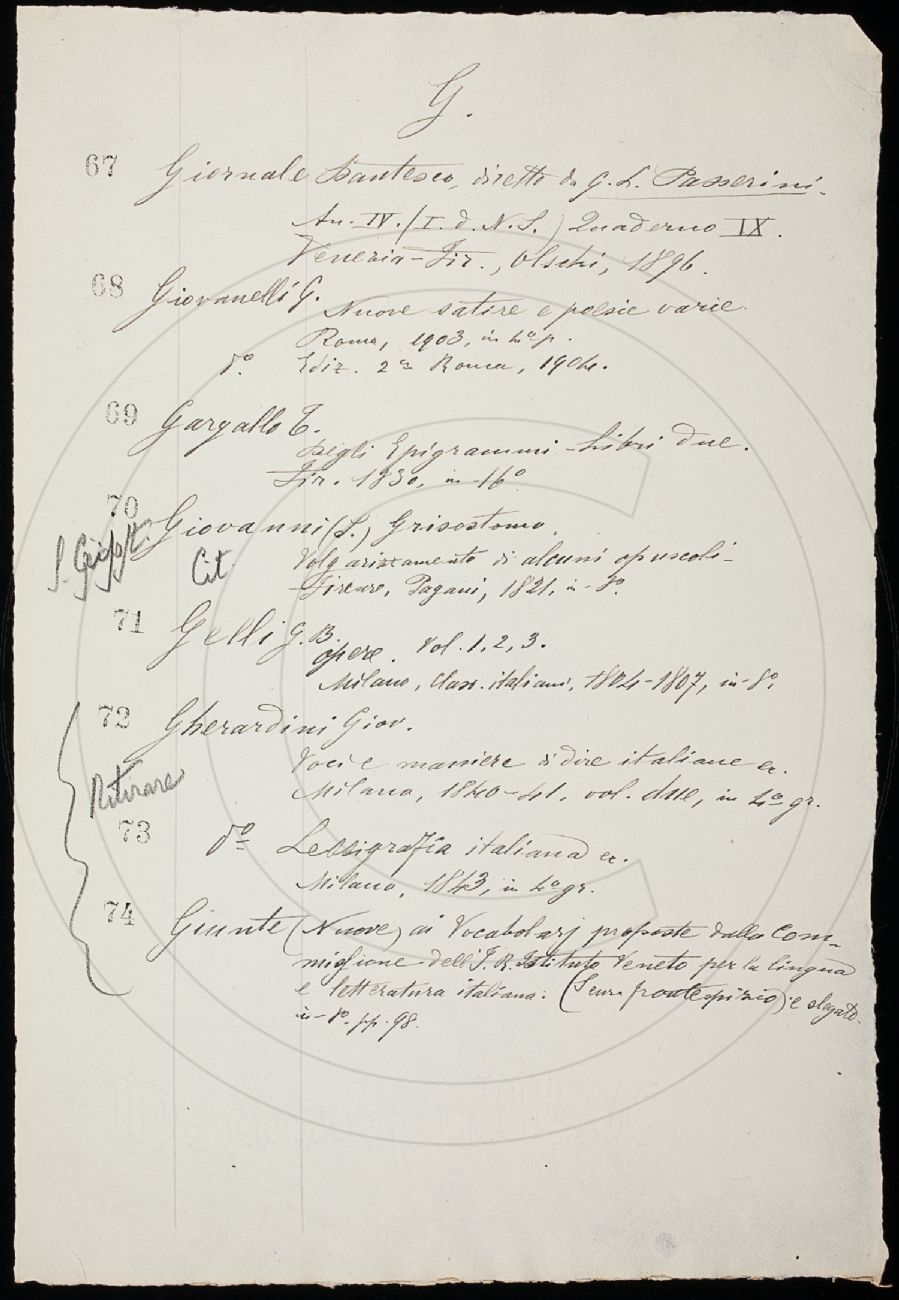 G.
67 Giornale Dantesco, diretto da G. L. Passerini.
An. IV. (I. d. N. S.) Quaderno IX.
Venezia-Fir., Olschi, 1896.
68 Giovanelli G.
Nuove satire e poesie varie.
Roma, 1903, in 4º p.
dº. Ediz. 2ª Roma, 1904.
69 Gargallo T.
Degli Epigrammi - Libri due.
Fir. 1830, in-16º
70 Giovanni (S.) Grisostomo.
Cit. Volgarizzamento di alcuni opuscoli-
Firenze, Pagani, 1821, in-8º.
71 Gelli G. B.
Opere. Vol. 1, 2, 3.
Milano, Class. italiani, 1804-1807, in-8º.
72 Gherardini Giov.
Voci e maniere di dire italiane ec.
Ritirare
Milano, 1840-41. vol. due, in 4º gr.
73 dº Lessigrafia italiana ec.
Milano, 1843, in 4º gr.
74 Giunte (Nuove) ai Vocabolarj proposte dalla Com-
missione dell'I. R. Istituto Veneto per la lingua
e letteratura italiana. (Senza frontespizio) e slegato.
in-8º. pp. 98.